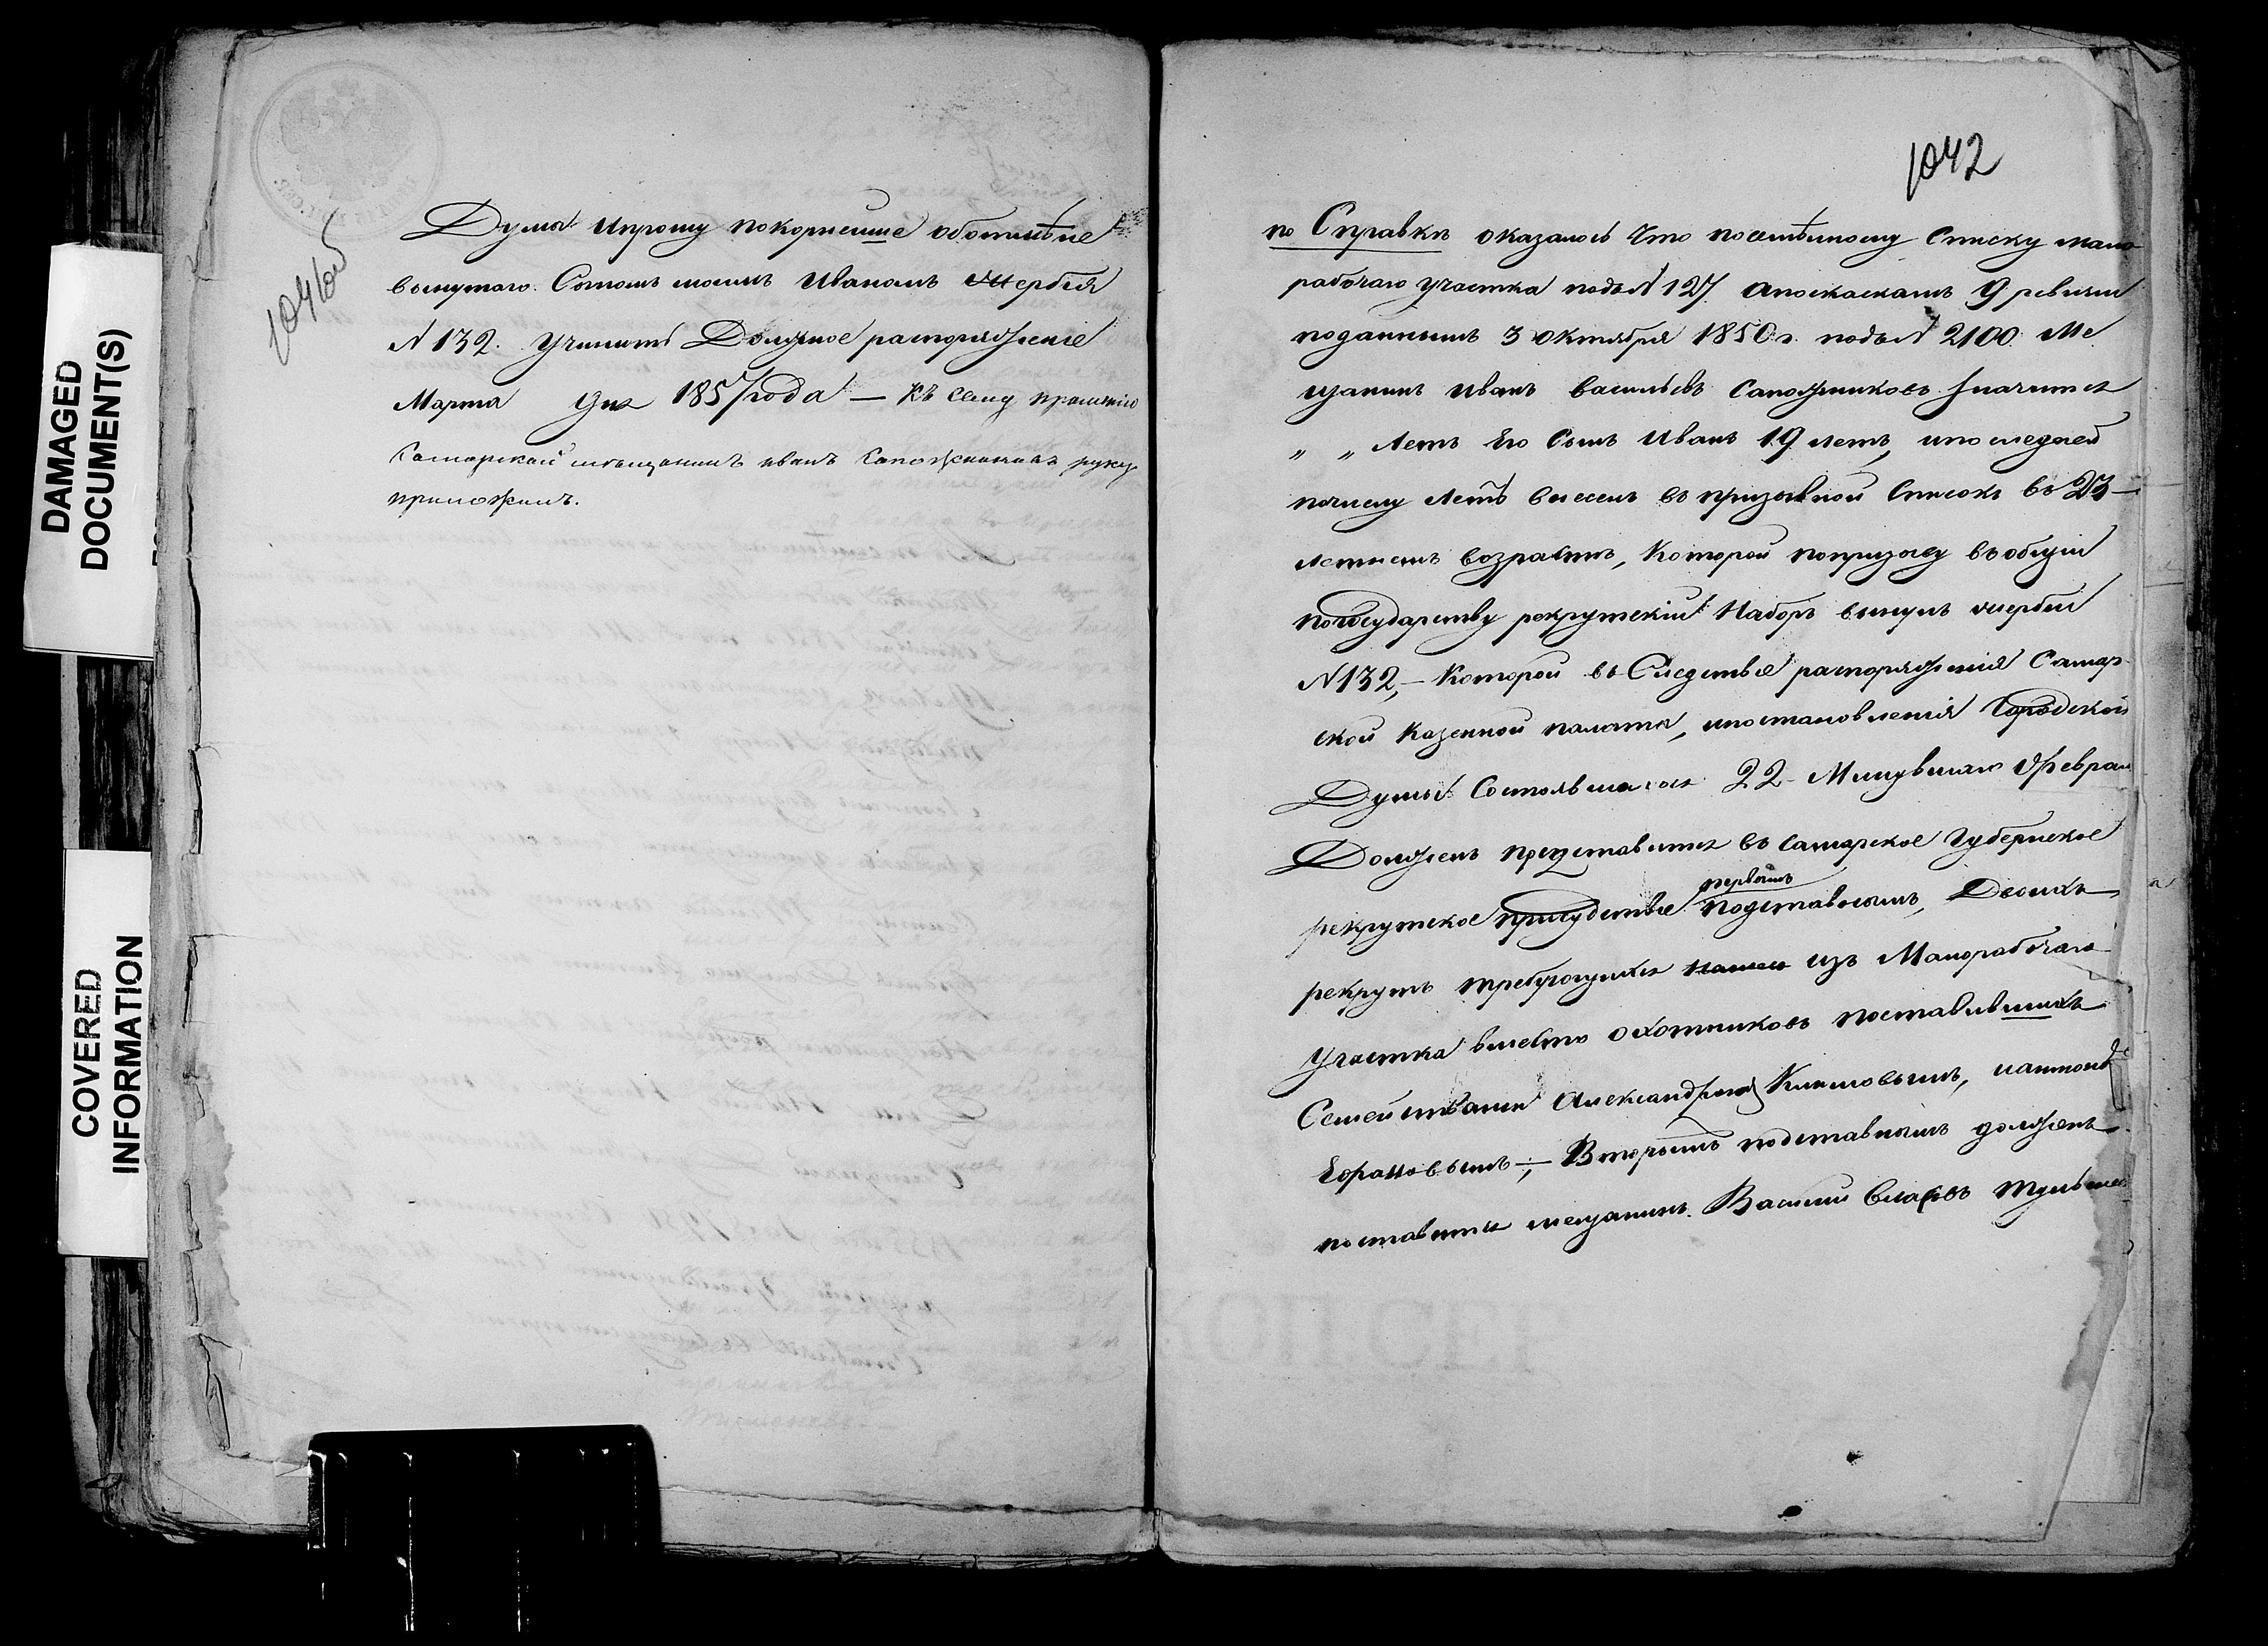 DAMAGED
DOCUMENT(S)
COVERED
INFORMATION
Думы ипрошу покорнейше оботмѣне
вынутаго Сыномъ моимъ Иваномъ жеребья
№ 132. Учинить Должное распоряженіе
Марта дня 1857 года — Къ сему прошенію
Самарской мѣщанинъ иванъ Сапожниковъ руку
приложилъ.
1042
по Справкѣ оказалось Что посемѣйному Списку мало
рабочаго участка подъ № 127. апоскаскамъ 9 ревизіи
поданнымъ 3 октября 1850 г. подъ № 2100. Ме
щанинъ Иванъ Васильевъ Сапожниковъ значится
„ „ Летъ Его Сынъ Иванъ 19 летъ, ипоследней
почислу Летъ внесенъ въ призывной Списокъ въ 23
летнемъ возрасте, Которой попризыву въ общій
погосударству рекрутскій Наборъ вынулъ жеребій
№ 132, — Которой въ Следствіе распоряженія Самар
ской Казенной палаты, ипостановленія Городской
Думы Состоявшагося 22 Минувшаго Февраля
Долженъ представится въ Самарское Губернское
рекрутское присудствіе первымъ подставнымъ, Двоихъ
рекрутъ требующихся изъ Малорабочаго
участка вместо охотниковъ поставившихъ
Семействами Климовымъ,
Вторымъ подставнымъ долженъ
поставится мещанинъ Василий Власовъ